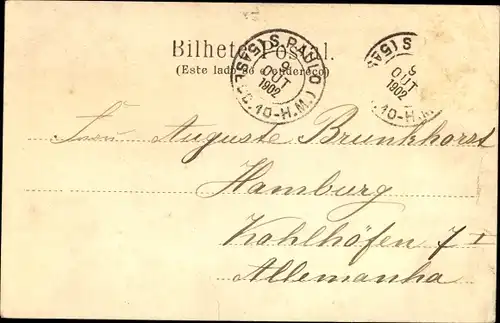 Bilhete Postal.
(Este lado só é endereço)
S. PAULO
9
OUT
1902
10-H.M.
9
OUT
1902
10-H.M.
Frau Auguste Brunkhorst
Hamburg
Kohlhöfen 7 I
Allemanha